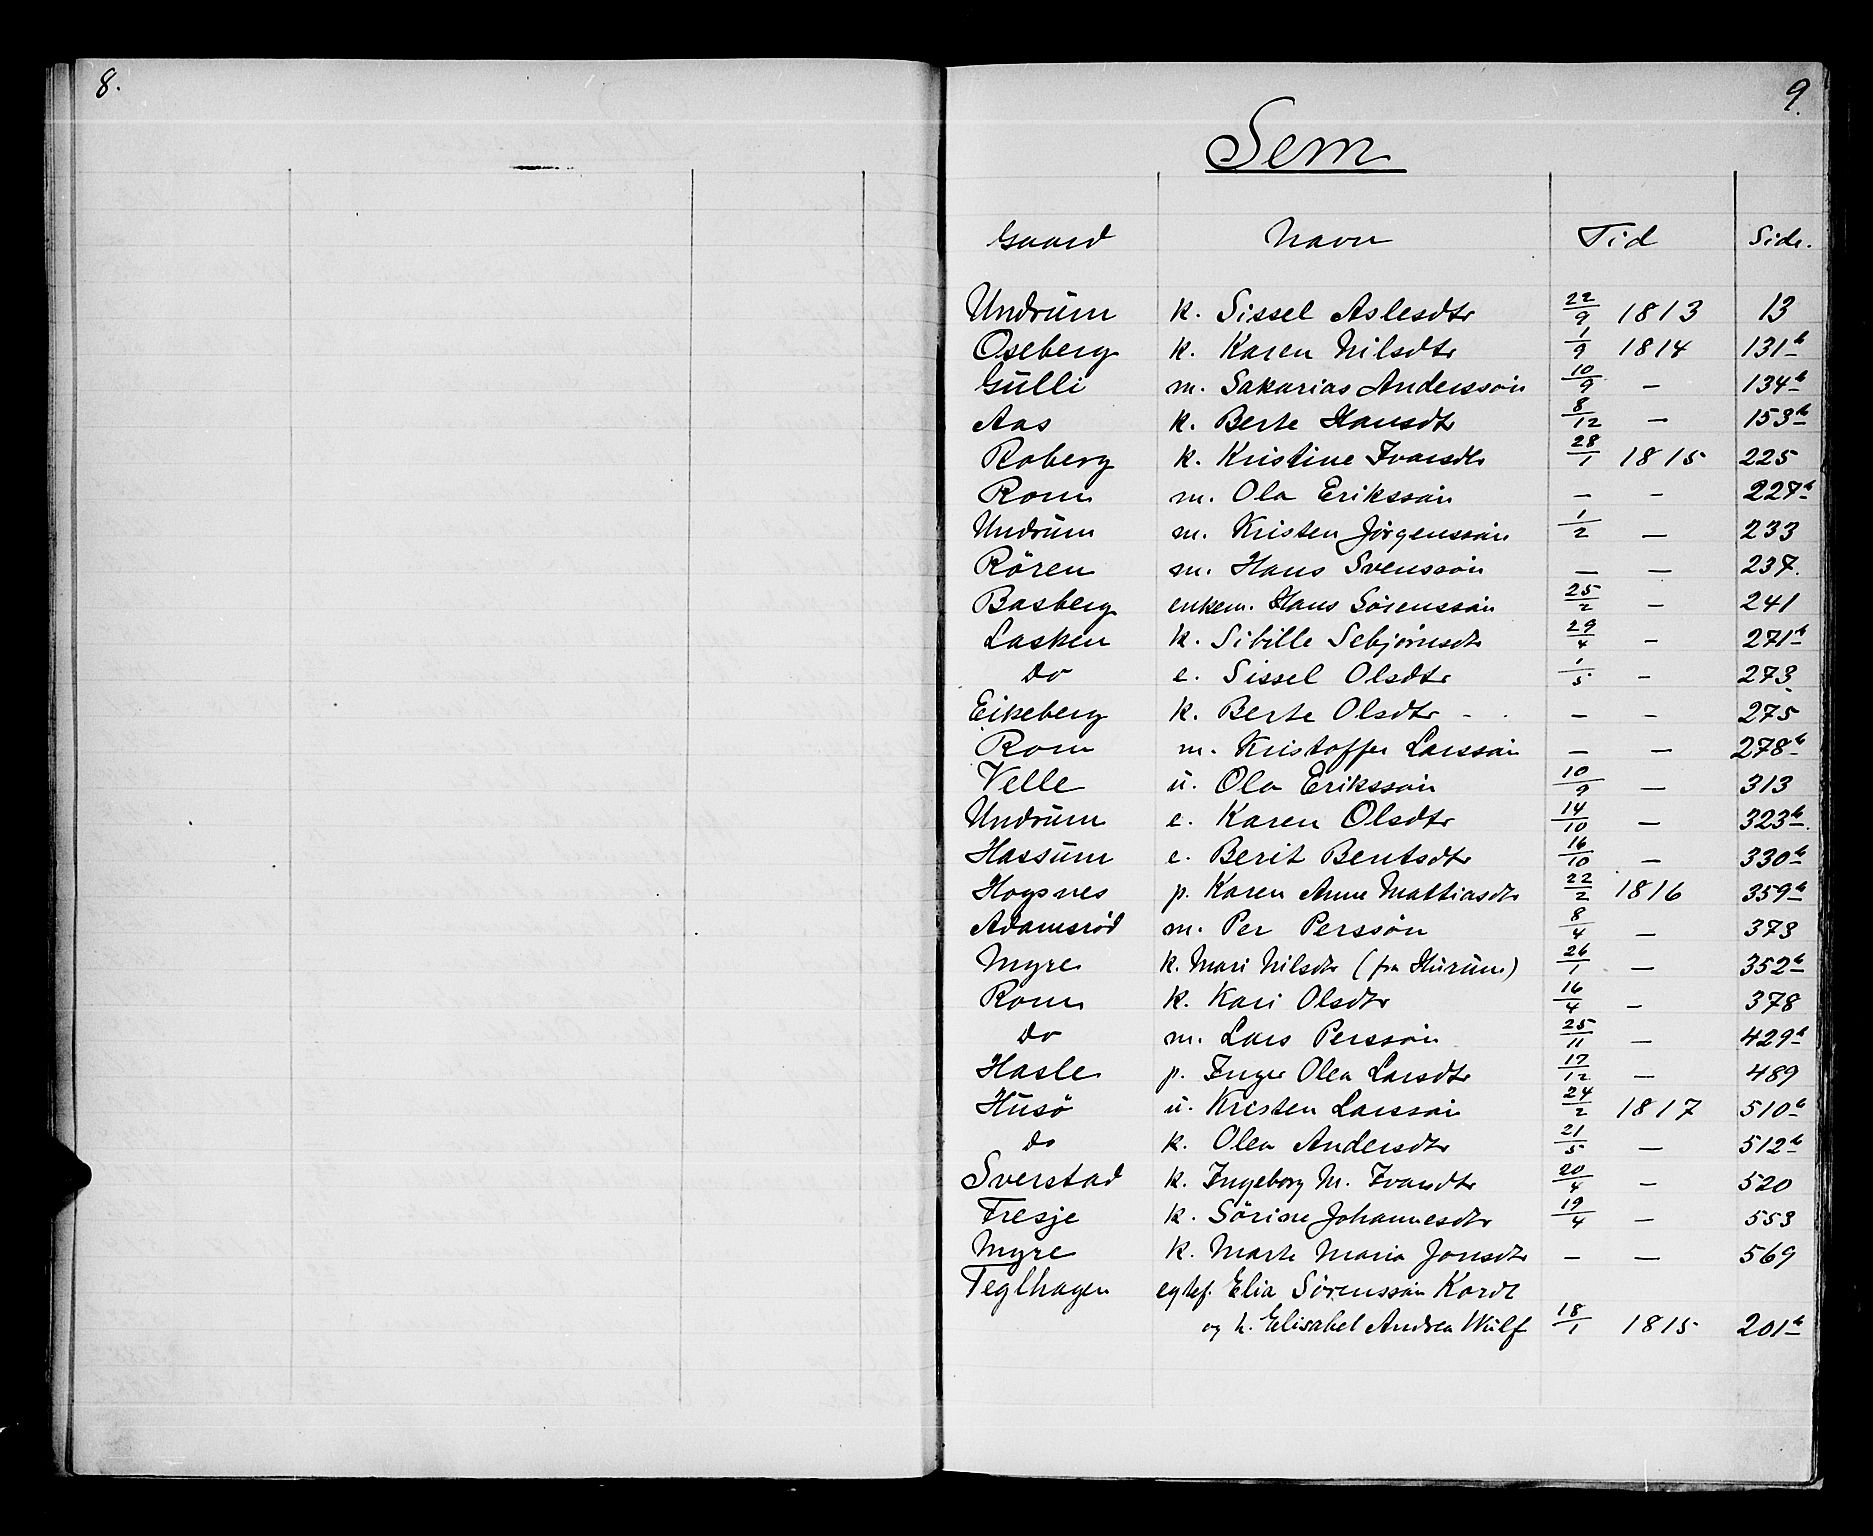 8.
9.
Sem
Gaard Navn Tid Side.
Undrum k. Sissel Aslesdtr 22/9 1813 13
Oseberg k. Karen Nilsdtr 1/9 1814 131b
Gulli m. Sakarias Anderssøn 10/9 - 134b
Aas k. Berte Hansdtr 8/12 - 153b
Roberg k. Kristine Ivarsdtr 28/1 1815 225
Rom m. Ola Erikssøn - - 227b
Undrum m. Kristen Jörgenssøn 1/2 - 233
Rören m. Hans Svenssøn - - 237.
Basberg enkem. Hans Sörenssøn 25/2 - 241
Lasken k. Sibille Sebjørnsdtr 29/4 - 271b
do e. Sissel Olsdtr 1/5 - 273
Eikeberg k. Berte Olsdtr - - 275
Rom m. Kristoffer Larssøn - - 278b
Velle u. Ola Erikssøn 10/9 - 313
Undrum e. Karen Olsdtr 14/10 - 323b
Hassum e. Berit Bentsdtr 16/10 - 330b
Hogsnes p. Karen Anne Mattiasdtr 22/2 1816 359b
Adamsrød m. Per Perssøn 8/4 - 373
Myre k. Mari Nilsdtr (fra Hurum) 26/1 - 352b
Rom k. Kari Olsdtr 16/4 - 378
do m. Lars Perssøn 25/11 - 429b
Hasle p. Inger Olea Larsdtr 17/12 - 489
Husö u. Kristen Larssøn 24/2 1817 510b
do k. Olea Andersdtr 21/5 - 512b
Sverstad k. Ingeborg M. Ivarsdtr 20/4 - 520
Tresje k. Sörine Johannesdtr 19/4 - 553
Myre k. Marte Maria Jonsdtr - - 569
Teglhagen egtef. Elia Sörenssøn Kordt
og h. Elisabet Andrea Wulf 18/1 1815 201b